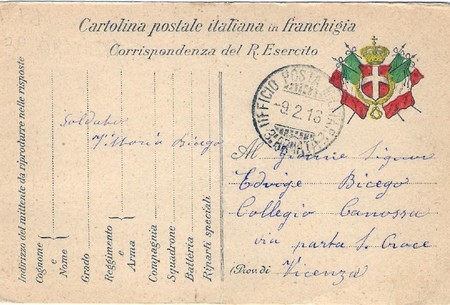 Cartolina postale italiana in franchigia
Corrispondenza del R. Esercito
UFFICIO POSTA MILITARE
-9.2.16
3ª ARMATA
Indirizzo del mittente da riprodurre nelle risposte
Cognome e Nome
Grado
Reggimento e Arma
Compagnia
Squadrone
Batteria
Riparti speciali
Soldato
Vittorio Bicego
Al Signor
Edvige Bicego
Collegio Canossa
via porta S. Croce
(Prov. di Vicenza